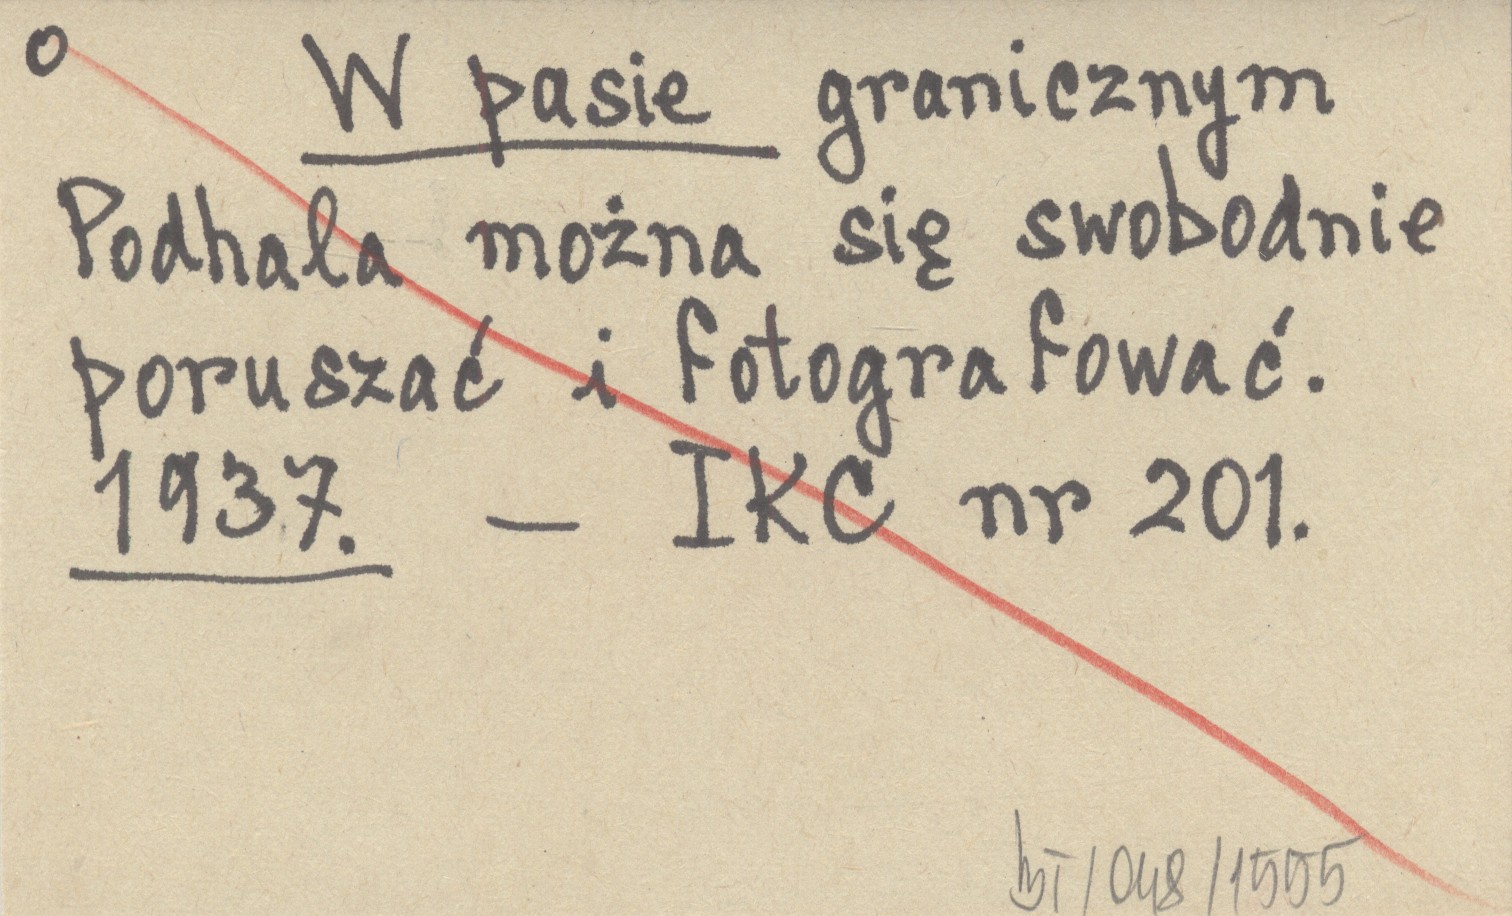 o W pasie granicznym
Podhala można się swobodnie
poruszać i fotografować.
1937. – IKC nr 201.
/048/1555